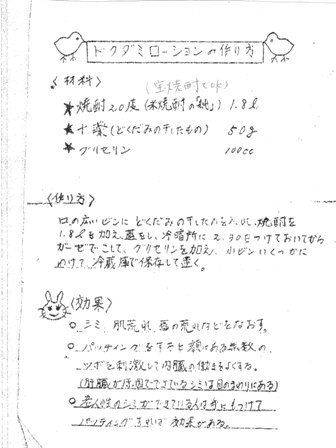 ドクダミローションの作り方
〈材料〉
(宝焼酎でOK)
★焼酎20度(米焼酎の「純」) 1.8ℓ
★十薬(どくだみの干したもの) 50g
★グリセリン 100cc
〈作り方〉
口の広いビンに どくだみの干したのを入れ、焼酎を
1.8ℓを加え、蓋をし、冷暗所に 2、30日つけておいてから
ガーゼでこして、グリセリンを加え、小ビンいくつかに
わけて、冷蔵庫で保存して置く。
〈効果〉
○シミ、肌荒れ、唇の荒れなどをなおす。
○パッティングをすると顔にある無数の、
ツボを刺激して内臓の働きをよくする。
(肝臓が原因でできているシミは目のまわりにある)
○老人性のシミができている人は手にもつけて
パッティングすれば効果がある。